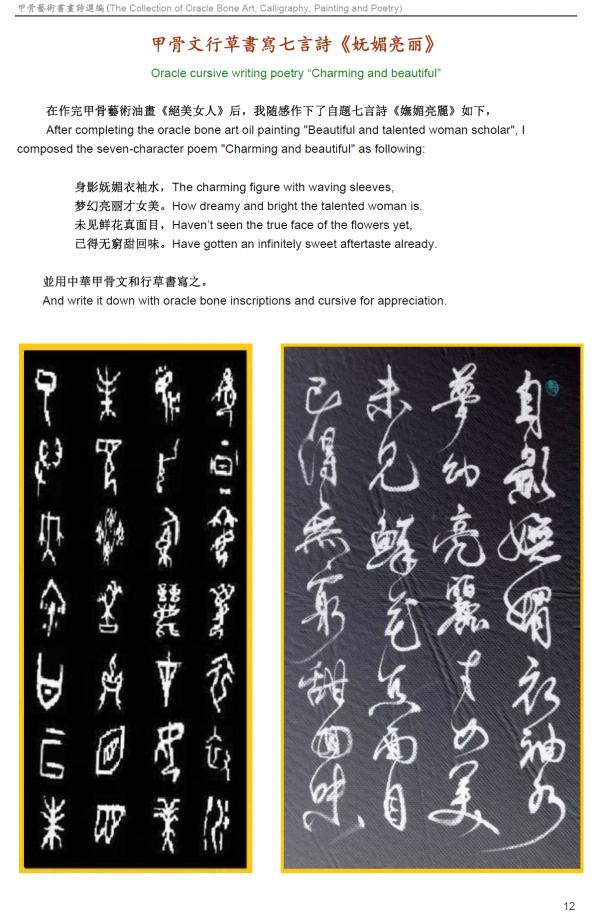 甲骨藝術書畫詩選編(The Collection of Oracle Bone Art, Calligraphy, Painting and Poetry)
甲骨文行草書寫七言詩《妩媚亮丽》
Oracle cursive writing poetry “Charming and beautiful”
在作完甲骨藝術油畫《絕美女人》后，我随感作下了自題七言詩《嫵媚亮麗》如下，
After completing the oracle bone art oil painting "Beautiful and talented woman scholar", I
composed the seven-character poem "Charming and beautiful" as following:
身影妩媚衣袖水，The charming figure with waving sleeves,
梦幻亮丽才女美。How dreamy and bright the talented woman is.
未见鲜花真面目，Haven’t seen the true face of the flowers yet,
已得无窮甜回味。Have gotten an infinitely sweet aftertaste already.
並用中華甲骨文和行草書寫之。
And write it down with oracle bone inscriptions and cursive for appreciation.
身影嫵媚衣袖水
夢幻亮麗才女美
未見鮮花真面目
已得無窮甜回味
12